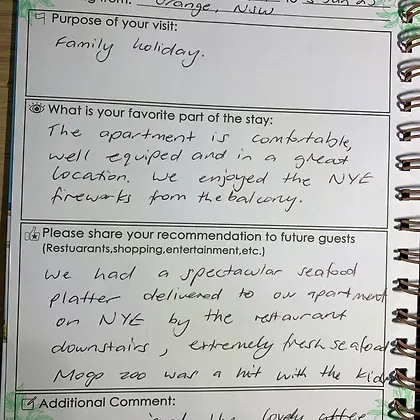 from: Orange, NSW
Purpose of your visit:
Family holiday.
What is your favorite part of the stay:
The apartment is comfortable,
well equiped and in a great
location. We enjoyed the NYE
fireworks from the balcony.
Please share your recommendation to future guests
(Restuarants,shopping,entertainment,etc.)
We had a spectacular seafood
platter delivered to our apartment
on NYE by the restaurant
downstairs, extremely fresh seafood
Mogo zoo was a hit with the kids
Additional Comment:
the lovely